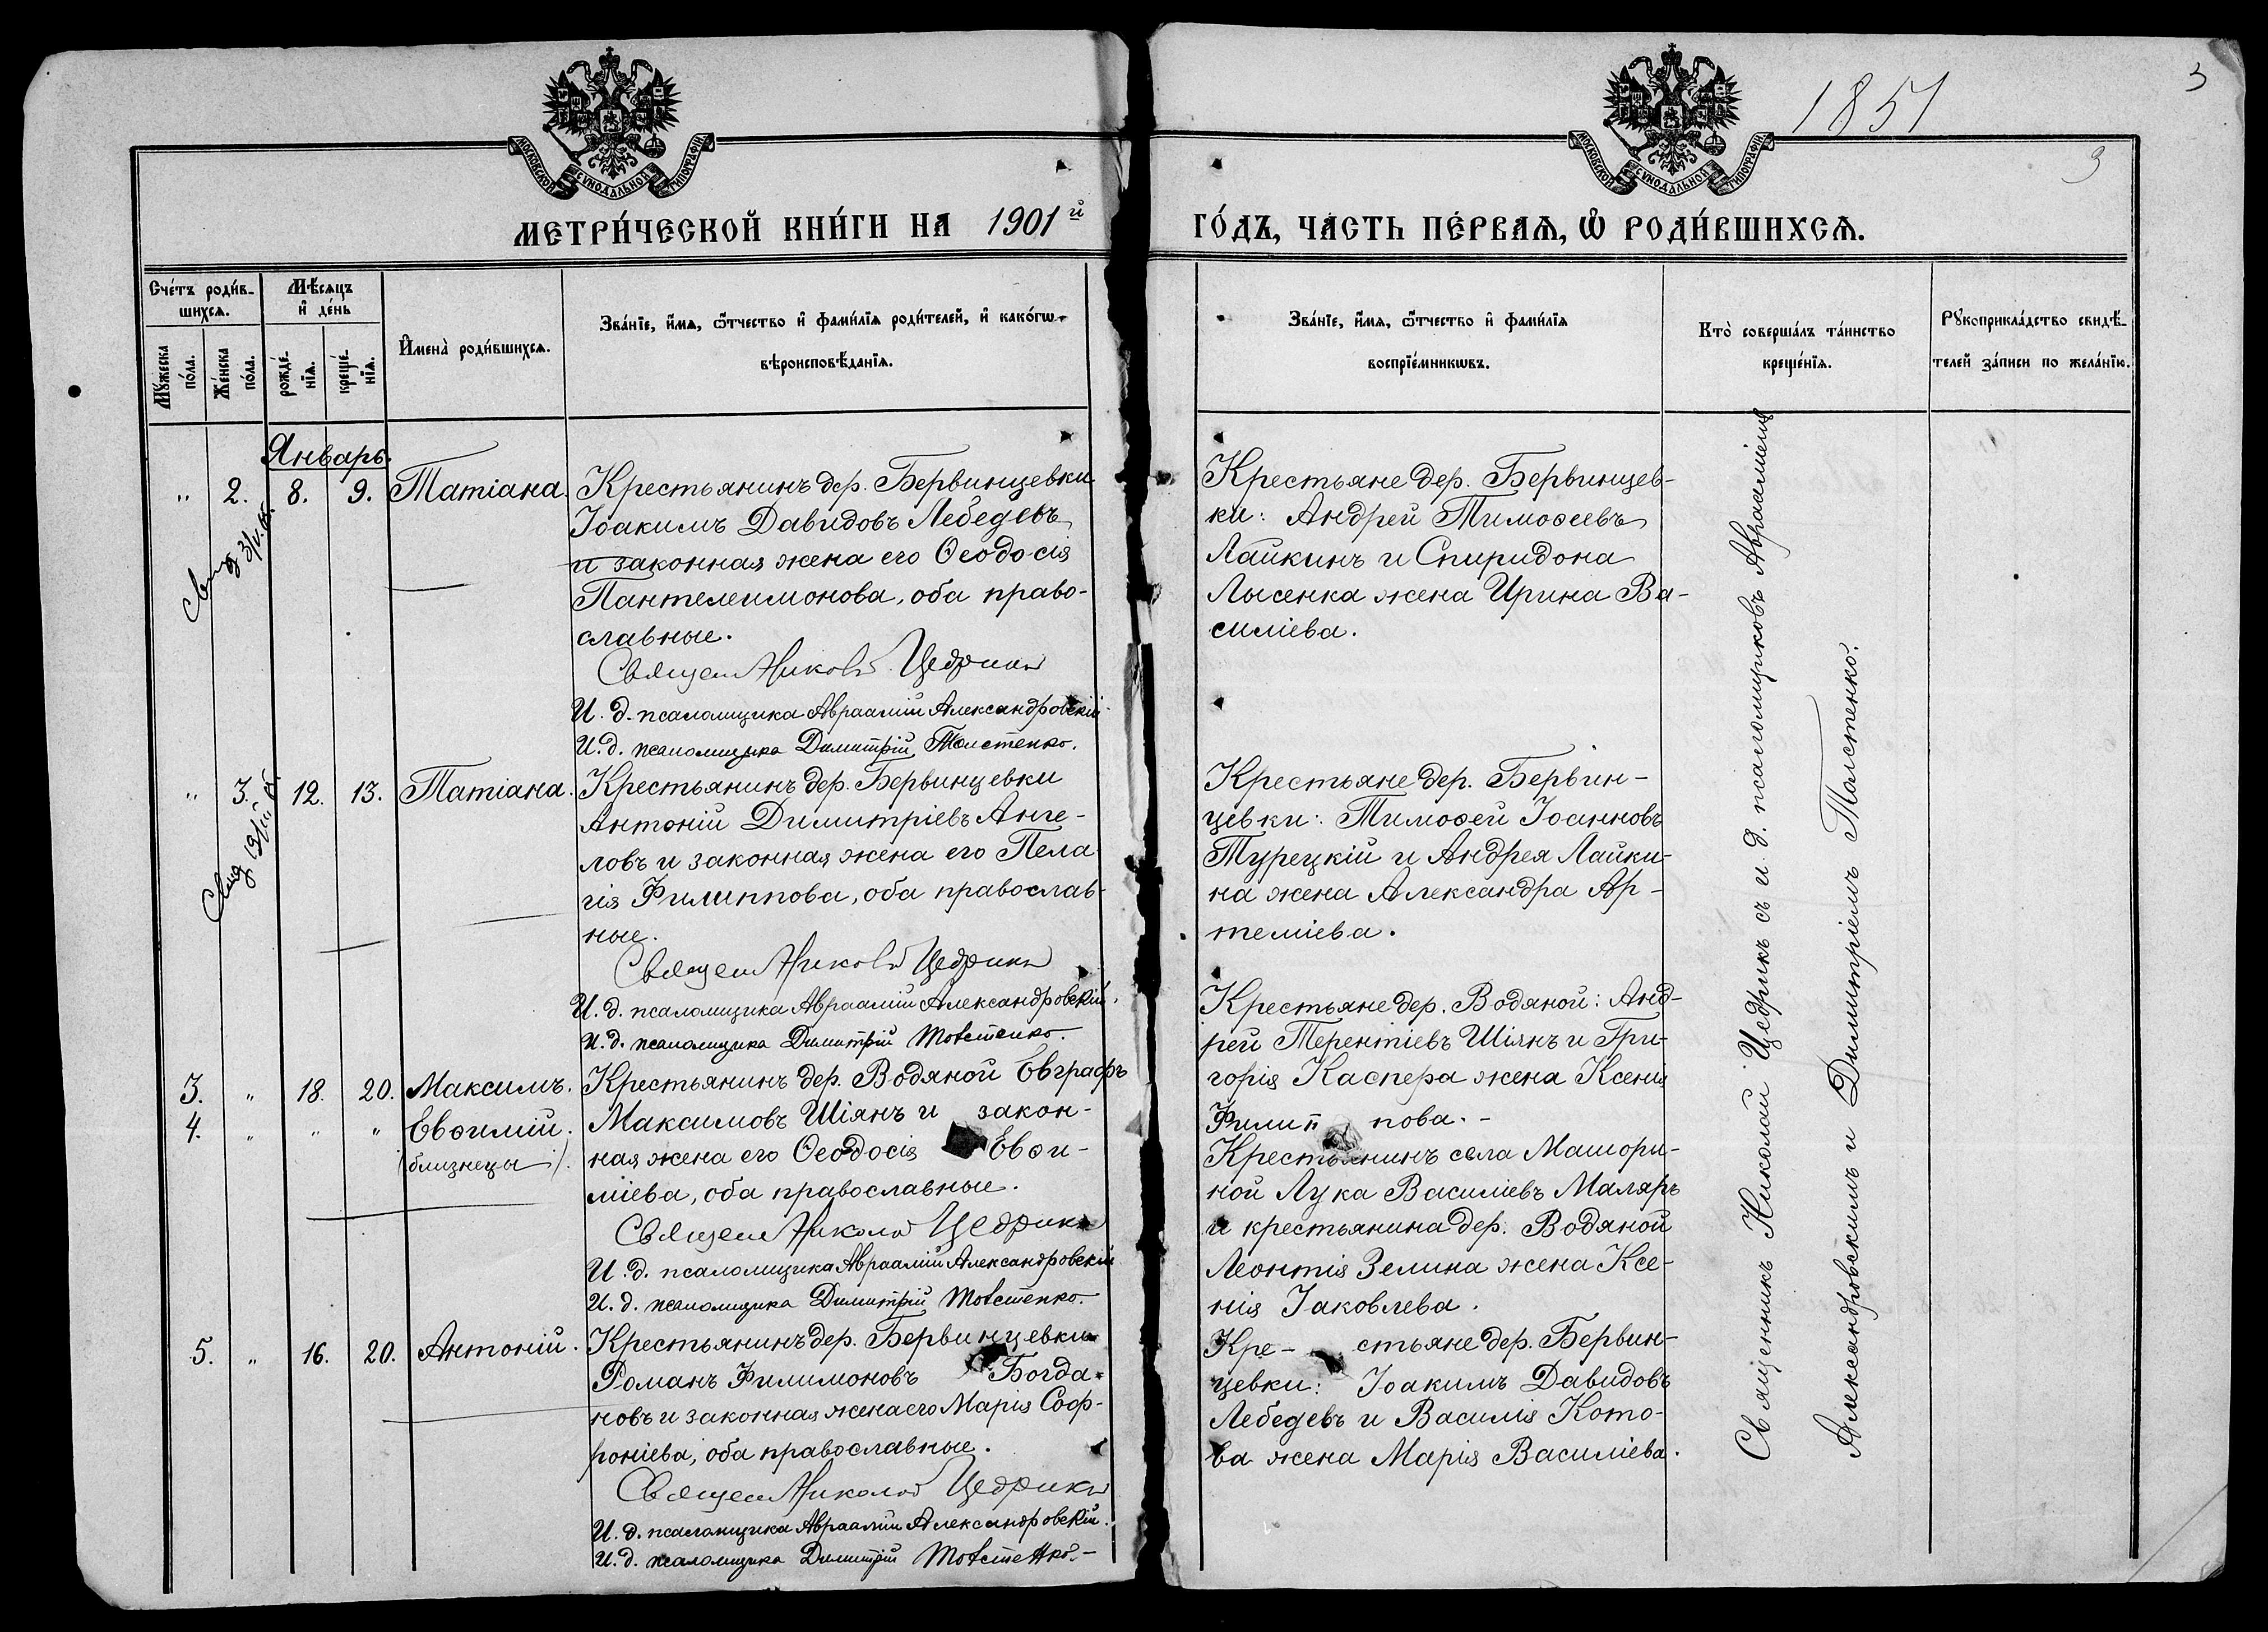 1851
3
3
МОСКОВСКОЙ СѴНОДАЛЬНОЙ ТИПОГРАФІИ
МОСКОВСКОЙ СѴНОДАЛЬНОЙ ТИПОГРАФІИ
МЕТРИ́ЧЕСКОЙ КНИ́ГИ НА 1901й
ГО́ДЪ, ЧА́СТЬ ПЕ́РВАѦ, Ѡ҆ РОДИ́ВШИХСѦ.
Сче́тъ роди́в-
шихсѧ.
Мꙋ́жеска
по́ла.
Же́нска
по́ла.
Мѣ́сѧцъ
и҆ де́нь
рожде́-
нїѧ.
креще́-
нїѧ.
И҆мена̀ роди́вшихсѧ.
Зва́нїе, и҆́мѧ, ѻ҆́тчество и҆ фами́лїѧ роди́телей, и҆ како́гѡ
вѣроисповѣ́данїѧ.
Зва́нїе, и҆́мѧ, ѻ҆́тчество и҆ фами́лїѧ
воспрїе́мникѡвъ.
Кто̀ соверша́лъ та́инство
креще́нїѧ.
Рꙋкоприкла́дство свидѣ́-
телей за́писи по жела́нїю.
Январь.
" 2. 8. 9. Татіана.
Крестьянинъ дер. Бервинцевки
Іоакимъ Давидовъ Лебедевъ
и законная жена его Ѳеодосія
Пантелеимонова, оба право-
славные.
Священ Никол Цедрикъ
И. д. псаломщика Авраамій Александровскій
И. д. псаломщика Димитрій Толстенко.
Крестьяне дер. Бервинцев-
ки: Андрей Тимоѳеевъ
Лайкинъ и Спиридона
Лысенка жена Ирина Ва-
силіева.
" 3. 12. 13. Татіана.
Крестьянинъ дер. Бервинцевки
Антоній Димитріевъ Анге-
ловъ и законная жена его Пела-
гія Филиппова, оба православ-
ные.
Священ Никол Цедрикъ
И. д. псаломщика Авраамій Александровскій.
И. д. псаломщика Димитрій Толстенко.
Крестьяне дер. Бервин-
цевки: Тимоѳей Іоанновъ
Турецкій и Андрея Лайки-
на жена Александра Ар-
теміева.
3. " 18. 20. Максимъ.
4. " " " Евѳимій.
(близнецы).
Крестьянинъ дер. Водяной Евграфъ
Максимовъ Шіянъ и закон-
ная жена его Ѳеодосія Евѳи-
міева, оба православные.
Священ Никол Цедрикъ
И. д. псаломщика Авраамій Александровскій
И. д. псаломщика Димитрій Толстенко.
Крестьяне дер. Водяной: Анд-
рей Терентіевъ Шіянъ и Гри-
горія Каспера жена Ксенія
Филип пова. -
Крестьянинъ села Машори-
ной Лука Василіевъ Маляръ
и крестьянина дер. Водяной
Леонтія Зелина жена Ксе-
нія Іаковлева.
5. " 16. 20. Антоній.
Крестьянинъ дер. Бервинцевки
Романъ Филимоновъ Богда-
новъ и законная жена его Марія Соф-
роніева, оба православные.
Священ Никол Цедрикъ
И. д. псаломщика Авраамій Александровскій.
И. д. псаломщика Димитрій Толстенко.-
Кре- стьяне дер. Бервин-
цевки: Іоакимъ Давидовъ
Лебедевъ и Василія Кото-
ва жена Марія Василіева.
Священникъ Николай Цедрикъ съ и. д. псаломщиковъ Авраміемъ
Александровскимъ и Димитріемъ Толстенко.